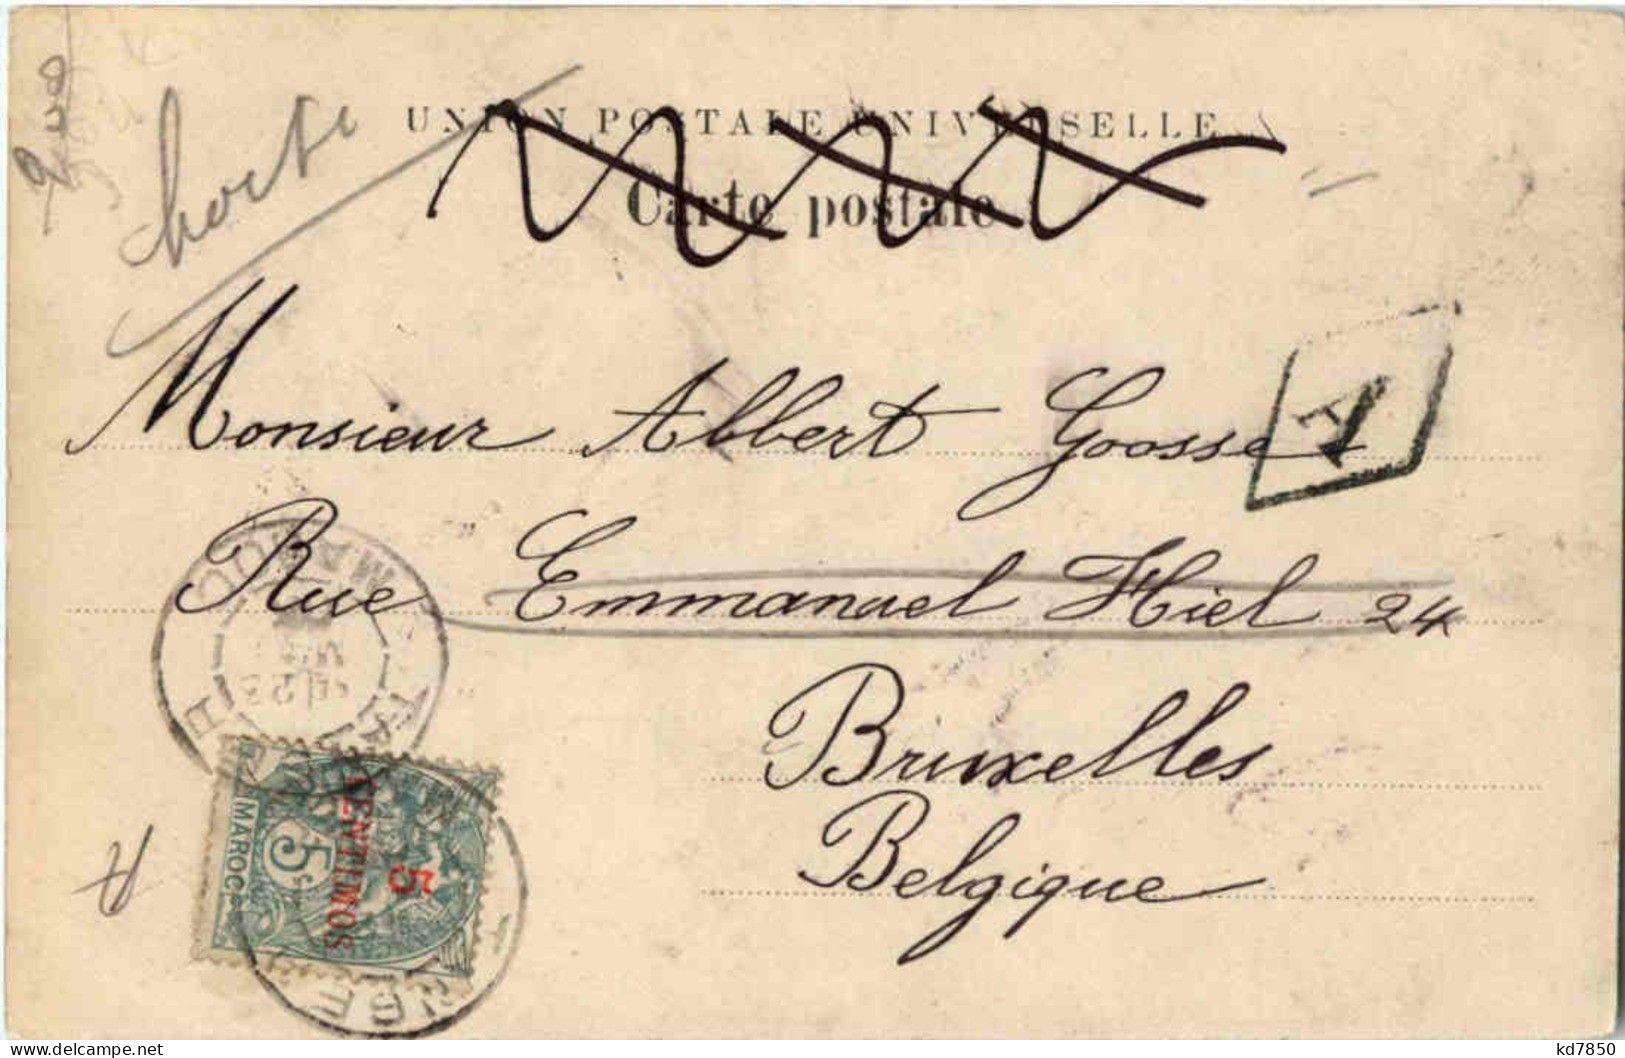 UNION POSTALE UNIVERSELLE
Carte postale
Monsieur Albert Goosse
A
Rue Emmanuel Hiel 24
Bruxelles
Belgique
TANGER
MAROC
23
MAROC
5c
5
CENTIMOS
TANGER
kd7850